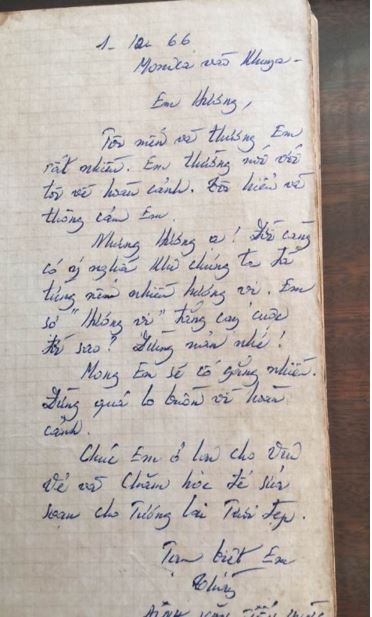 Em Hương,
Tôi mến và thương Em
rất nhiều. Em thường nói với
tôi về hoàn cảnh. Tôi hiểu và
thông cảm Em.
Nhưng Hương ạ! Đời càng
có ý nghĩa khi chúng ta đã
từng nếm nhiều hương vị. Em
sợ "Hương vị" đắng cay cuộc
đời sao? Đừng nản nhé!
Mong Em sẽ cố gắng nhiều.
Đừng quá lo buồn vì hoàn
cảnh.
Chúc Em ở lại cho vui
vẻ và chăm học để sửa
soạn cho Tương lai Tươi đẹp.
Tạm biệt Em